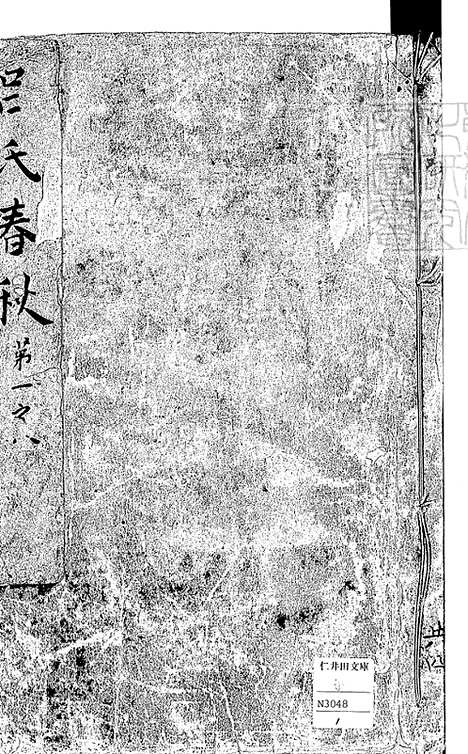 呂氏春秋
第一之八
共四
仁井田文庫
N3048
1